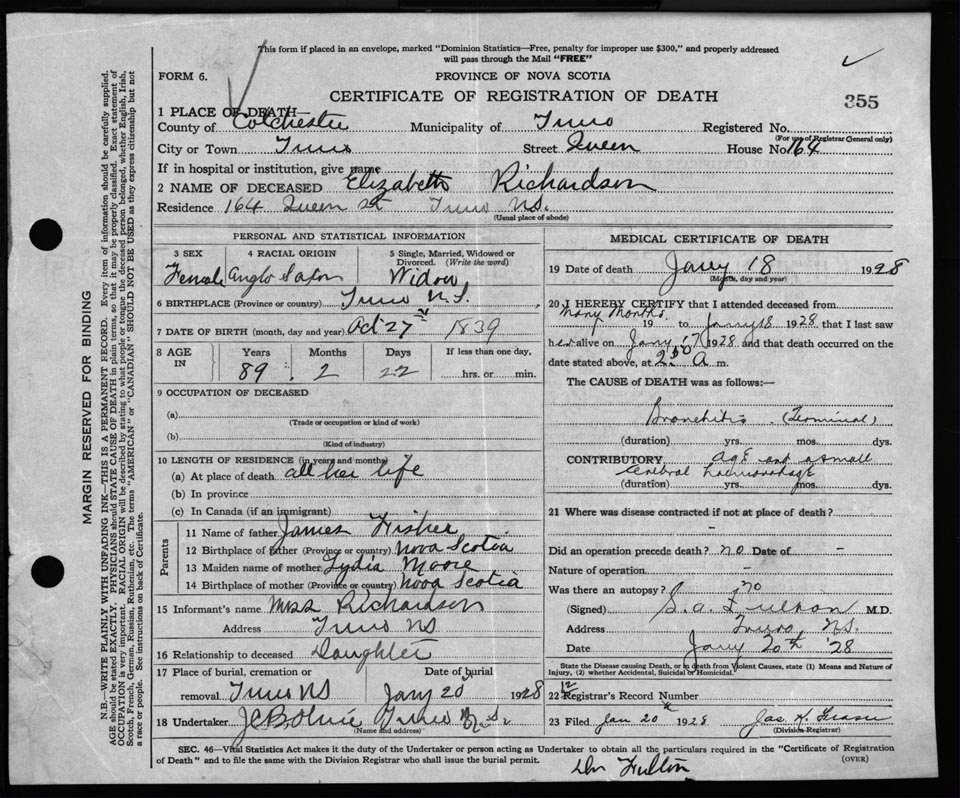 This form if placed in an envelope, marked "Dominion Statistics—Free, penalty for improper use $300," and properly addressed
will pass through the Mail "FREE"
FORM 6. PROVINCE OF NOVA SCOTIA
CERTIFICATE OF REGISTRATION OF DEATH 355
1 PLACE OF DEATH—
County of Colchester Municipality of Truro Registered No.
(For use of Registrar General only)
City or Town Truro Street Queen House No. 164
If in hospital or institution, give name
2 NAME OF DECEASED Elizabeth Richardson
Residence 164 Queen St Truro N.S.
(Usual place of abode)
PERSONAL AND STATISTICAL INFORMATION
3 SEX 4 RACIAL ORIGIN 5 Single, Married, Widowed or
Divorced. (Write the word)
Female Anglo Saxon Widow
6 BIRTHPLACE (Province or country) Truro N.S.
7 DATE OF BIRTH (month, day and year) Oct 27th 1839
8 AGE IN Years Months Days If less than one day,
89 2 22 hrs. or min.
9 OCCUPATION OF DECEASED
(a)
(Trade or occupation or kind of work)
(b)
(Kind of industry)
10 LENGTH OF RESIDENCE (in years and months)
(a) At place of death all her life
(b) In province
(c) In Canada (if an immigrant)
Parents
11 Name of father James Fisher
12 Birthplace of father (Province or country) Nova Scotia
13 Maiden name of mother Lydia Moore
14 Birthplace of mother (Province or country) Nova Scotia
15 Informant's name Miss Richardson
Address Truro NS
16 Relationship to deceased Daughter
17 Place of burial, cremation or Date of burial
removal Truro NS Jany 20 1928
18 Undertaker Truro N.S.
(Name and address)
MEDICAL CERTIFICATE OF DEATH
19 Date of death Jany 18 1928
(Month, day and year)
20 I HEREBY CERTIFY that I attended deceased from
Many Months
19 to Jany 18 1928 that I last saw
her alive on Jany 17 1928 and that death occurred on the
date stated above, at 2 30 A m.
The CAUSE of DEATH was as follows:—
Bronchitis (Terminal)
(duration) yrs. mos. dys.
CONTRIBUTORY Age and a small
Cerebral haemorrhage
(duration) yrs. mos. dys.
21 Where was disease contracted if not at place of death?
-
Did an operation precede death? no Date of -
Nature of operation -
Was there an autopsy? no
(Signed) S. A. Fulton M.D.
Address Truro N.S.
Date Jany 20th '28
State the Disease causing Death, or in death from Violent Causes, state (1) Means and Nature of
Injury, (2) whether Accidental, Suicidal or Homicidal.
22 Registrar's Record Number 12
23 Filed Jan 20 1928 Jas. K. Fraser
(Division Registrar)
SEC. 46—Vital Statistics Act makes it the duty of the Undertaker or person acting as Undertaker to obtain all the particulars required in the "Certificate of Registration
of Death" and to file the same with the Division Registrar who shall issue the burial permit. (OVER)
Dr Fulton
MARGIN RESERVED FOR BINDING
N.B.—WRITE PLAINLY WITH UNFADING INK—THIS IS A PERMANENT RECORD. Every item of information should be carefully supplied.
AGE should be stated EXACTLY. PHYSICIANS should STATE CAUSE OF DEATH in plain terms, so that it may be properly classified. Exact statement of
OCCUPATION is very important. RACIAL ORIGIN will be described by stating to what people or tongue the deceased person belonged, whether English, Irish,
Scotch, French, German, Russian, Ruthenian, etc. The terms "AMERICAN" or "CANADIAN" SHOULD NOT BE USED as they express citizenship but not
a race or people. See instructions on back of Certificate.